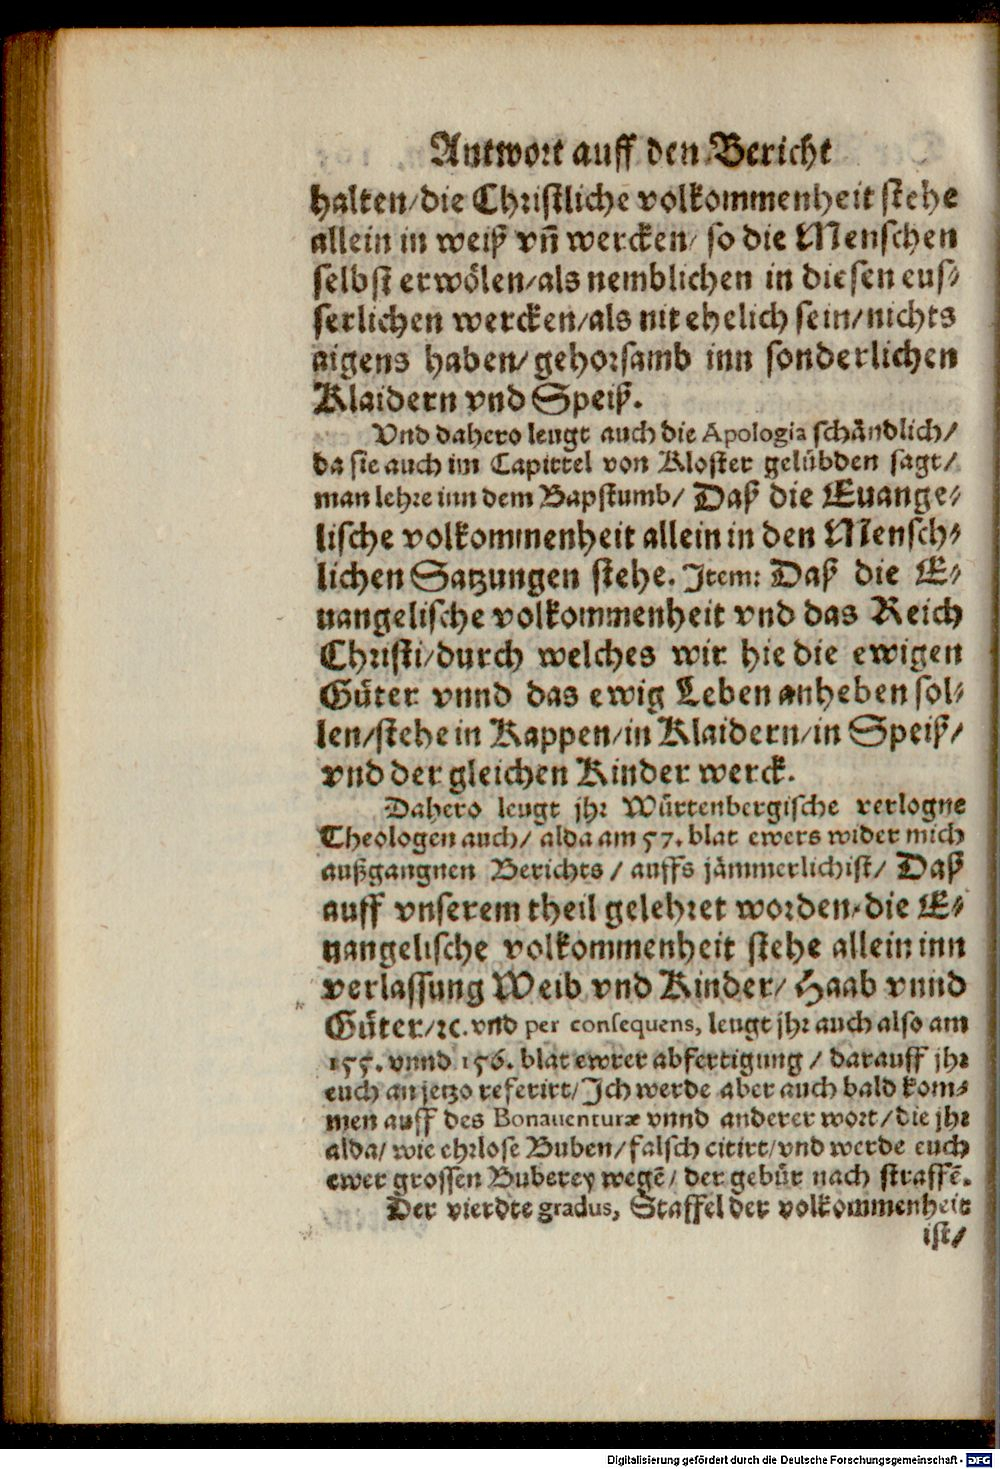 Antwort auff den Bericht
halten/die Christliche volkommenheit stehe
allein in weiß vñ wercken/ so die Menschen
selbst erwölen/als nemblichen in diesen eus⸗
serlichen wercken/als nit ehelich sein/nichts
aigens haben/gehorsamb inn sonderlichen
Klaidern vnd Speiß.
Vnd dahero leugt auch die Apologia schändlich/
da sie auch im Capittel von Kloster gelübden sagt/
man lehre inn dem Bapstumb/ Daß die Euange⸗
lische volkommenheit allein in den Mensch⸗
lichen Satzungen stehe. Item: Daß die E⸗
uangelische volkommenheit vnd das Reich
Christi/durch welches wir hie die ewigen
Güter vnnd das ewig Leben anheben sol⸗
len/stehe in Kappen/in Klaidern/in Speiß/
vnd der gleichen Kinder werck.
Dahero leugt jhr Würtenbergische verlogne
Theologen auch/ alda am 57. blat ewers wider mich
außgangnen Berichts/ auffs jämmerlichist/ Daß
auff vnserem theil gelehret worden/die E⸗
uangelische volkommenheit stehe allein inn
verlassung Weib vnd Kinder/ Haab vnnd
Güter/ꝛc. vnd per consequens, leugt jhr auch also am
155. vnnd 156. blat ewrer abfertigung/ darauff jhr
euch an jetzo referirt/Ich werde aber auch bald kom⸗
men auff des Bonauenturæ vnnd anderer wort/die jhr
alda/ wie ehrlose Buben/falsch citirt/vnd werde euch
ewer grossen Buberey wegē/ der gebür nach straffē.
Der vierdte gradus, Staffel der volkommenheit
ist/
Digitalisierung gefördert durch die Deutsche Forschungsgemeinschaft - DFG